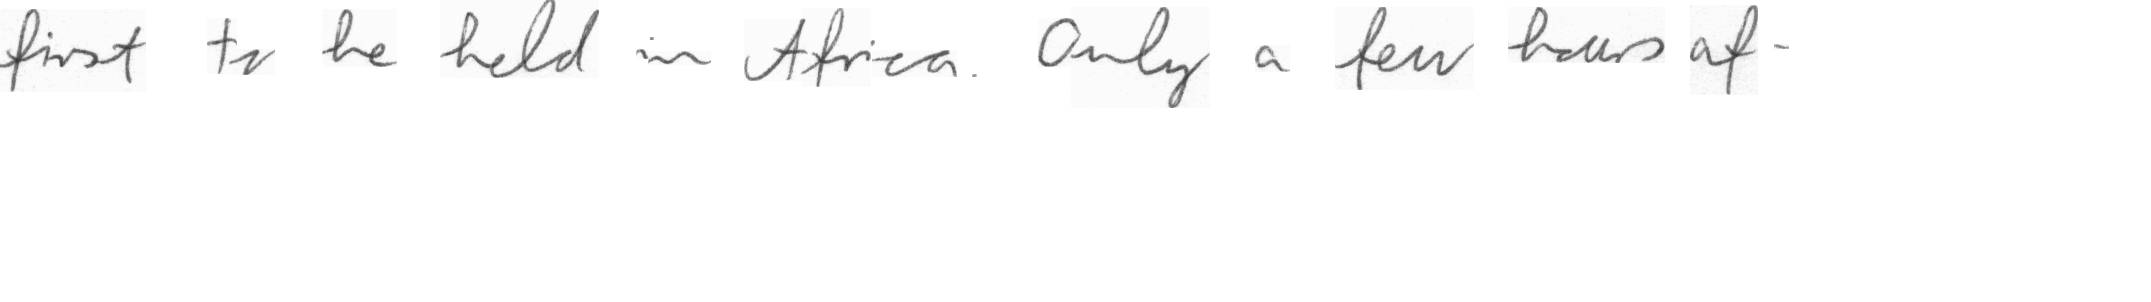 first to be held in Africa. Only a few hours af-